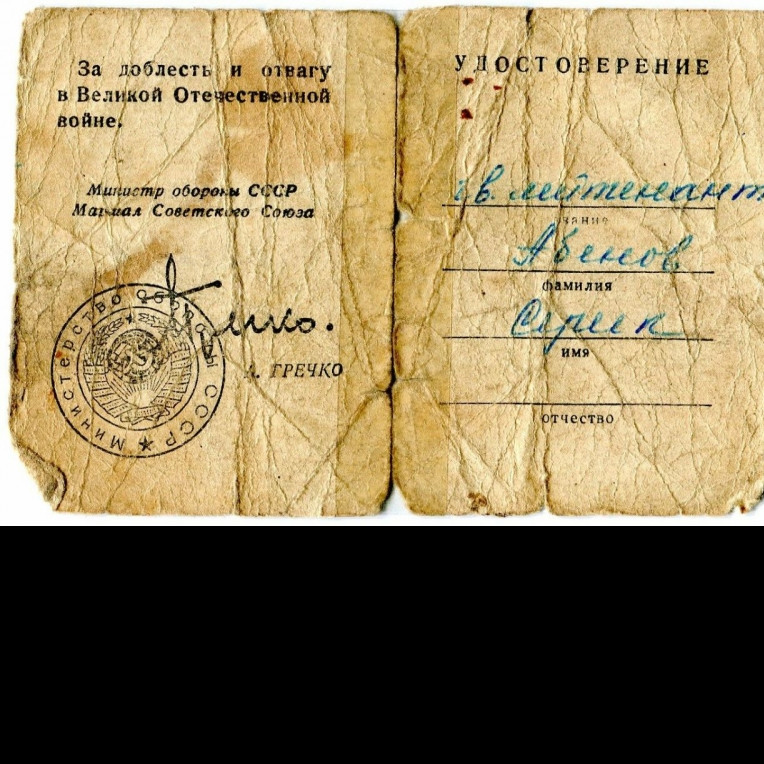 За доблесть и отвагу
в Великой Отечественной
войне.
Министр обороны СССР
Маршал Советского Союза
А. ГРЕЧКО
Министерство обороны СССР
УДОСТОВЕРЕНИЕ
гв. лейтенант
звание
Абенов
фамилия
Серек
имя
отчество